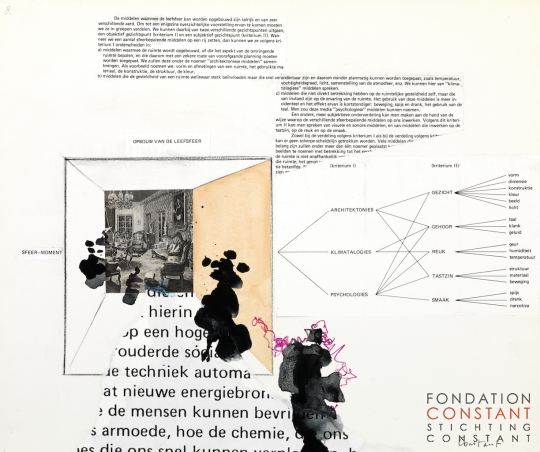 De middelen waarmee de leefsfeer kan worden opgebouwd zijn talrijk en van zeer
verschillende aard. Om tot een enigszins overzichtelijke voorstelling ervan te kunnen
we ze in groepen verdelen. We kunnen daarbij van twee gezichtspunten uitgaan,
een objektief gezichtspunt (kriterium I) en een subjektief gezichtspunt (kriterium II). Wan-
neer we een aantal sfeerbepalende middelen op een rij zetten, dan kunnen we ze volgens kri-
terium I onderscheiden in:
a) middelen waarmee de ruimte wordt opgebouwd, of die het aspekt van de omringende
ruimte bepalen, en die daarom met een zekere mate van voorafgaande planning moeten
worden toegepast. We zullen deze onder de noemer "architektonische middelen" samen-
brengen. Als voorbeeld noemen we: vorm en afmetingen van een ruimte, het gebruikte ma-
teriaal, de konstruktie, de struktuur, de kleur.
b) middelen die de gesteldheid van een ruimte weliswaar sterk beïnvloeden maar die snel veranderbaar zijn en daarom minder planmatig kunnen worden toegepast, zoals temperatuur,
vochtigheidsgraad, licht, samenstelling van de atmosfeer, enz. We kunnen hier van "klima-
tologiese" middelen spreken.
c) middelen die niet direkt betrekking hebben op de ruimtelijke gesteldheid zelf, maar die
van invloed zijn op de ervaring van de ruimte. Het gebruik van deze middelen is meer in-
cidenteel en het effekt ervan is kortstondiger: beweging, spijs en drank, het gebruik van de
taal. Men zou deze media "psychologiese" middelen kunnen noemen.
Een andere, meer subjektieve onderverdeling kan men maken aan de hand van de
wijze waarop de verschillende sfeerbepalende middelen op ons inwerken. Volgens dit kriteri-
um II kan men spreken van visuele en sonore middelen, en van middelen die inwerken op de
tastzin, op de reuk en op de smaak.
Zowel bij de verdeling volgens kriterium I als bij de verdeling volgens
kan er geen scherpe scheidslijn getrokken worden. Vele middelen
belang zijn zullen onder meer dan één noemer geplaatst
beelden te noemen met betrekking tot het
de ruimte is niet onafhankelijk
die ruimte; het
OPBOUW VAN DE LEEFSFEER
(kriterium I)
(kriterium II)
SFEER-MOMENT
ARCHITEKTONIES
KLIMATALOGIES
PSYCHOLOGIES
GEZICHT
GEHOOR
REUK
TASTZIN
SMAAK
vorm
dimensie
konstruktie
kleur
beeld
licht
taal
klank
geluid
geur
humiditeit
temperatuur
struktuur
materiaal
beweging
spijs
drank
narcotica
hierin
op een hoge
rouderde sócia
de techniek automa
at nieuwe energiebron
e de mensen kunnen bevri
s armoede, hoe de chemie, ons
die ons snel kunnen
FONDATION
CONSTANT
STICHTING
CONSTANT
constant